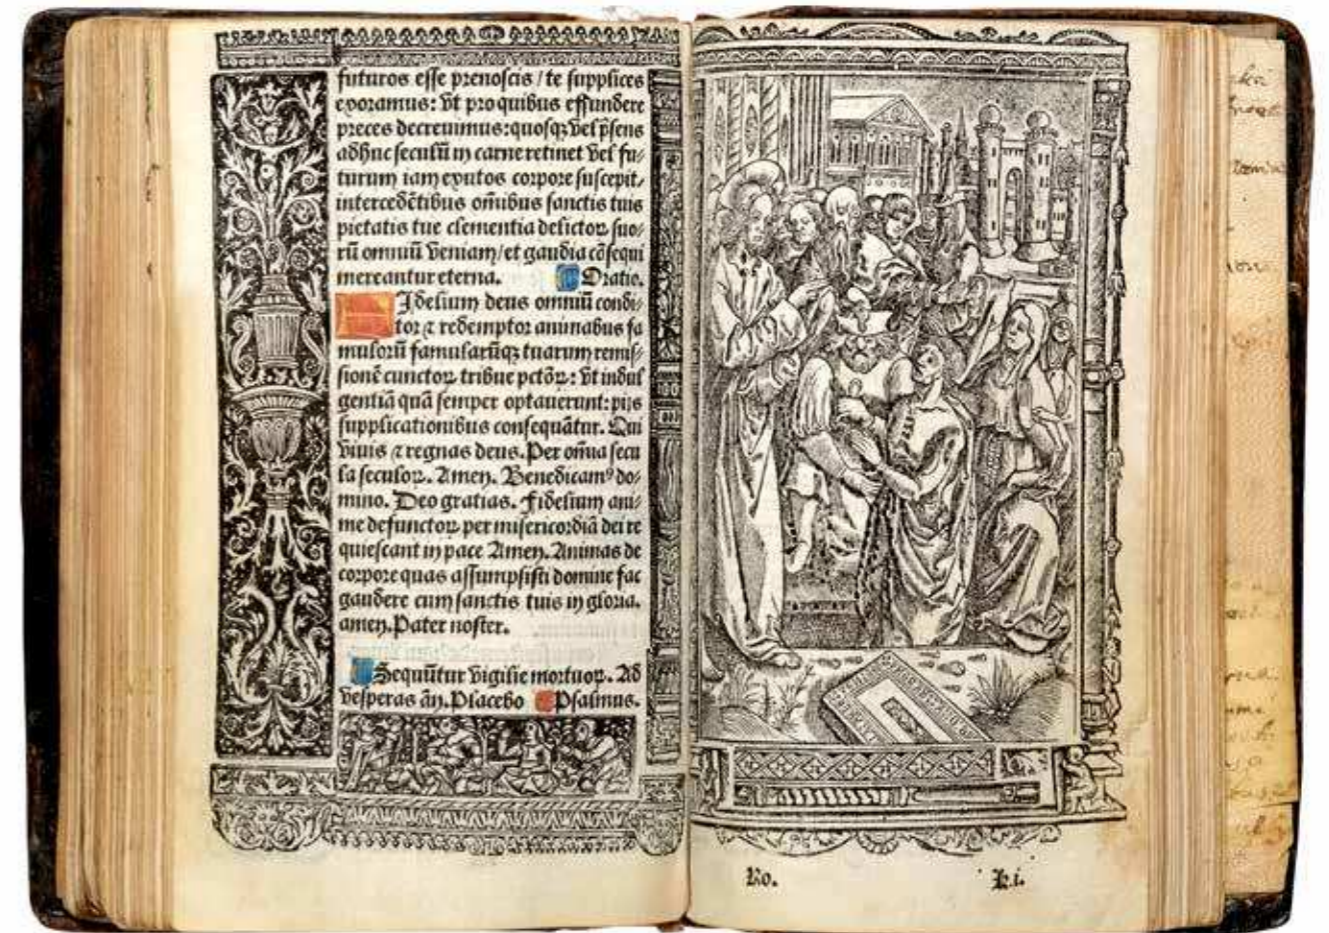 futuros esse prenoscis / te supplices
exoramus: vt pro quibus effundere
preces decreuimus: quosqꝫ vel p̄sens
adhuc seculū in carne retinet vel fu⸗
turum iam exutos corpore suscepit,
intercedētibus om̄ibus sanctis tuis
pietatis tue clementia delictoꝝ suo⸗
rū omniū veniam / et gaudia cōsequi
mereantur eterna. Oratio.
Fidelium deus omniū condi⸗
tor ⁊ redemptor animabus fa
mulorū famularūqꝫ tuarum remis⸗
sionē cunctoꝝ tribue pctōꝝ: vt indul
gentiā quā semper optauerunt: pijs
supplicationibus consequātur. Qui
viuis ⁊ regnas deus. Per om̄ia secu
la seculoꝝ. Amen. Benedicamꝰ do⸗
mino. Deo gratias. Fidelium ani⸗
me defunctoꝝ per misericordiā dei re
quiescant in pace Amen. Animas de
corpore quas assumpsisti domine fac
gaudere cum sanctis tuis in gloria.
amen. Pater noster.
Sequūtur vigilie mortuoꝝ. Ad
vesperas añ. Placebo Psalmus.
Ro. k.i.